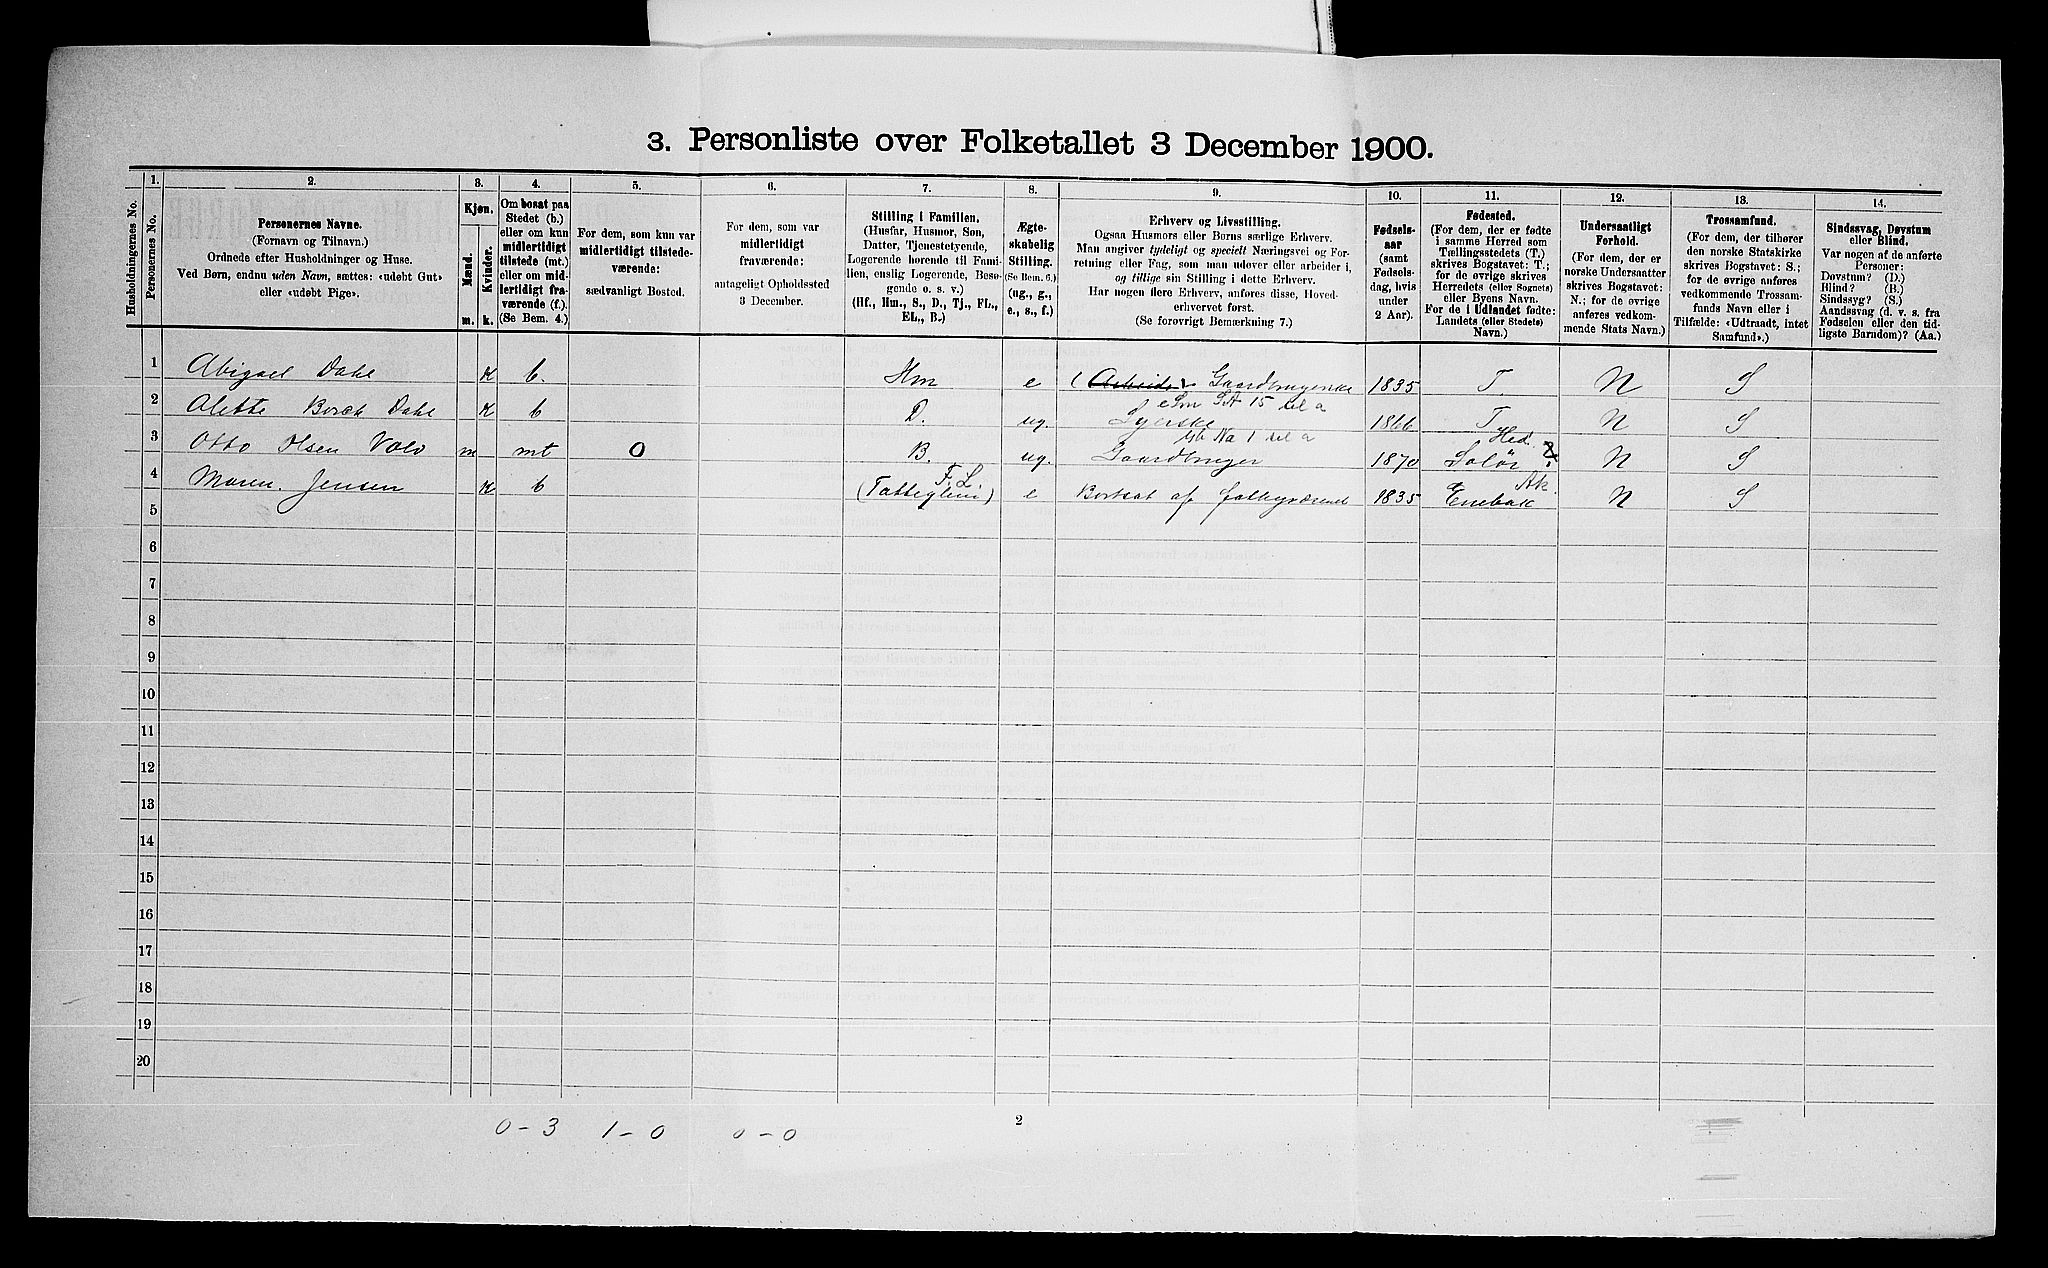 3. Personliste over Folketallet 3 December 1900.
1. 2. 3. 4. 5. 6. 7. 8. 9. 10. 11. 12. 13. 14.
Husholdningernes No.
Personernes No.
Personernes Navne.
(Fornavn og Tilnavn.)
Ordnede efter Husholdninger og Huse.
Ved Børn, endnu uden Navn, sættes: «udøbt Gut»
eller «udøbt Pige».
Kjøn.
Mænd.
Kvinder.
m. k.
Om bosat paa
Stedet (b.)
eller om kun
midlertidigt
tilstede (mt.)
eller om mid-
lertidigt fra-
værende (f.)
(Se Bem. 4.)
For dem, som kun var
midlertidigt tilstede-
værende:
sædvanligt Bosted.
For dem, som var
midlertidigt
fraværende:
antageligt Opholdssted
3 December.
Stilling i Familien.
(Husfar, Husmor, Søn,
Datter, Tjenestetyende,
Logerende hørende til Fami-
lien, enslig Logerende, Besø-
gende o. s. v.)
(Hf., Hm., S., D., Tj., FL.,
EL., B.)
Ægte-
skabelig
Stilling.
(Se Bem. 6.)
(ug., g.,
e., s., f.)
Erhverv og Livsstilling.
Ogsaa Husmors eller Børns særlige Erhverv.
Man angiver tydeligt og specielt Næringsvei og For-
retning eller Fag, som man udover eller arbeider i,
og tillige sin Stilling i dette Erhverv.
Har nogen flere Erhverv, anføres disse, Hoved-
erhvervet først.
(Se forøvrigt Bemærkning 7.)
Fødsels-
aar
(samt
Fødsels-
dag, hvis
under
2 Aar).
Fødested.
(For dem, der er fødte
i samme Herred som
Tællingsstedets (T.)
skrives Bogstavet: T.;
for de øvrige skrives
Herredets (eller Sognets)
eller Byens Navn.
For de i Udlandet fødte:
Landets (eller Stedets)
Navn.)
Undersaatligt
Forhold.
(For dem, der er
norske Undersaatter
skrives Bogstavet:
N.; for de øvrige
anføres vedkom-
mende Stats Navn.)
Trossamfund.
(For dem, der tilhører
den norske Statskirke
skrives Bogstavet: S.;
for de øvrige anføres
vedkommende Trossam-
funds Navn eller i
Tilfælde: «Udtraadt, intet
Samfund».)
Sindssvag, Døvstum
eller Blind.
Var nogen af de anførte
Personer:
Døvstum? (D.)
Blind? (B.)
Sindssyg? (S.)
Aandssvag (d. v. s. fra
Fødselen eller den tid-
ligste Barndom)? (Aa.)
1 Abigael Dahl k b. Hm e (Arbeids Gaardbrugerske 1835 T. N S
2 Alette Borch Dahl k b D. ug. Syerske 1866 T N S
3 Otto Olsen Vold m mt O B. ug. Gaardbruger 1870 Solør Hed. ? N S
4 Maren Jensen k b F. L. e Bortsat af 1835 Enebak Ak. N S
5
6
7
8
9
10
11
12
13
14
15
16
17
18
19
20
0 – 3 1 – 0 0 – 0
2